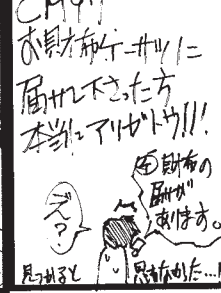 お財布ケーサツに
届けて下さった方
本当にアリガトウ!!!
財布の
届けが
あります。
え?
見つかると
思わなかった…!